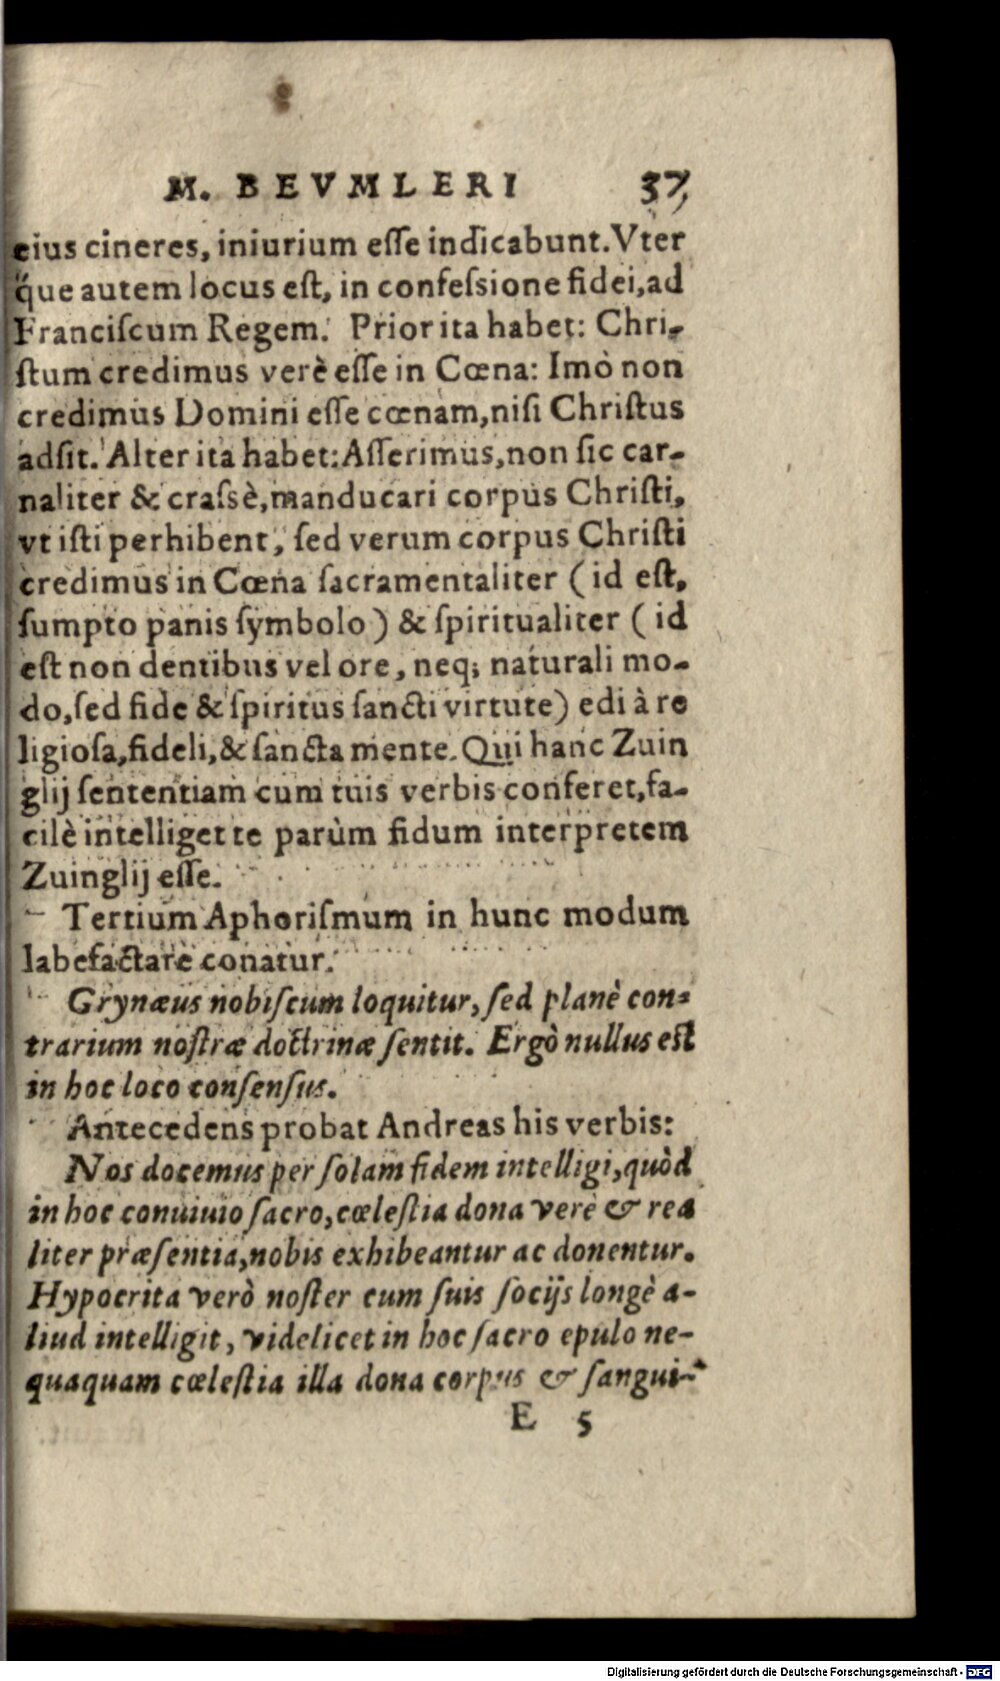 M. BEVMLERI 37
eius cineres, iniurium eſſe indicabunt. Vter
q́ue autem locus eſt, in confeſsione fidei, ad
Franciſcum Regem. Prior ita habet: Chri-
ſtum credimus verè eſſe in Cœna: Imò non
credimus Domini eſſe cœnam, niſi Chriſtus
adſit. Alter ita habet: Aſſerimus, non ſic car-
naliter & craſsè, manducari corpus Chriſti,
vt iſti perhibent, ſed verum corpus Chriſti
credimus in Cœna ſacramentaliter ( id eſt,
ſumpto panis ſymbolo ) & ſpiritualiter ( id
eſt non dentibus vel ore, neq; naturali mo-
do, ſed fide & ſpiritus ſancti virtute) edi à re
ligioſa, fideli, & ſancta mente. Qui hanc Zuin
glij ſententiam cum tuis verbis conferet, fa-
cilè intelliget te parùm fidum interpretem
Zuinglij eſſe.
Tertium Aphoriſmum in hunc modum
labefactare conatur.
Grynæus nobiſcum loquitur, ſed planè con-
trarium noſtræ doctrinæ ſentit. Ergò nullus eſt
in hoc loco conſenſus.
Antecedens probat Andreas his verbis:
Nos docemus per ſolam fidem intelligi, quòd
in hoc conuiuio ſacro, cœleſtia dona verè & rea
liter præſentia, nobis exhibeantur ac donentur.
Hypocrita verò noſter cum ſuis ſocijs longè a-
liud intelligit, videlicet in hoc ſacro epulo ne-
quaquam cœleſtia illa dona corpus & ſangui-
E 5
Digitalisierung gefördert durch die Deutsche Forschungsgemeinschaft - DFG